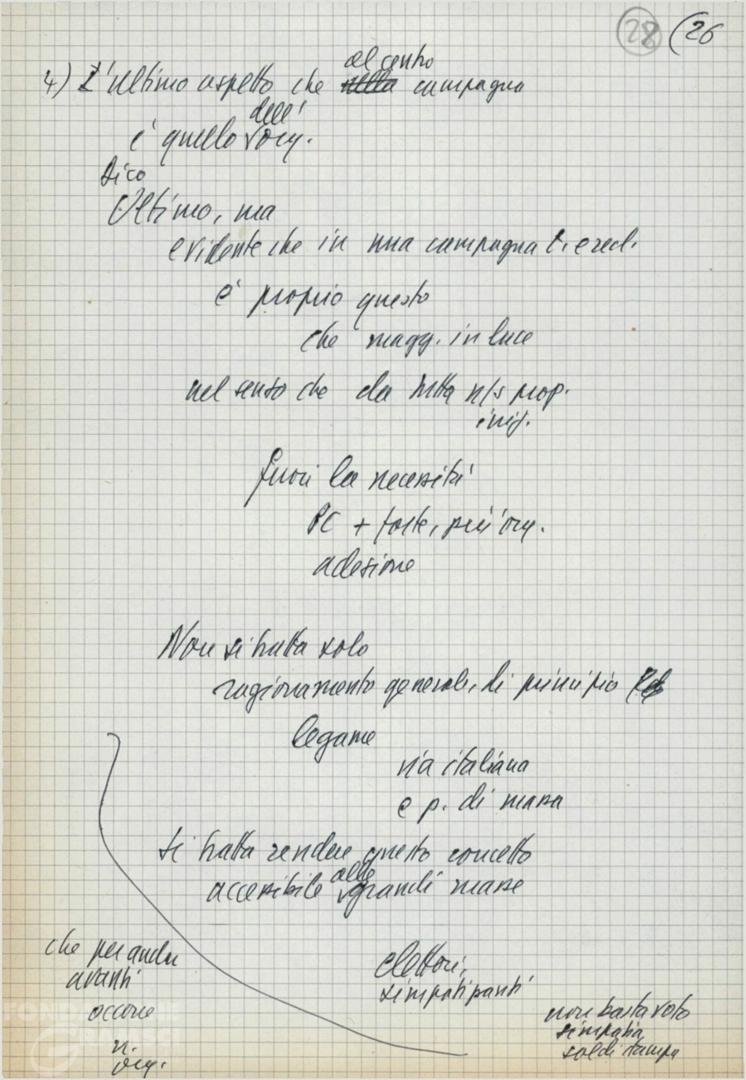 28 (26
al centro
4) L'ultimo aspetto che nella campagna
è quello dell' org.
Dico
Ultimo, ma
evidente che in una campagna t. e recl.
è proprio questo
che magg. in luce
nel senso che da tutta n/s prop.
iniz.
fuori la necessità
PC + forte, più org.
adesione
Non si tratta solo
ragionamento generale, di principio
legame
via italiana
e p. di massa
si tratta rendere questo concetto
accessibile alle grandi masse
che per andare
avanti
occorre
n.
org.
elettori,
simpatizzanti
non basta voto
simpatia
soldi stampa